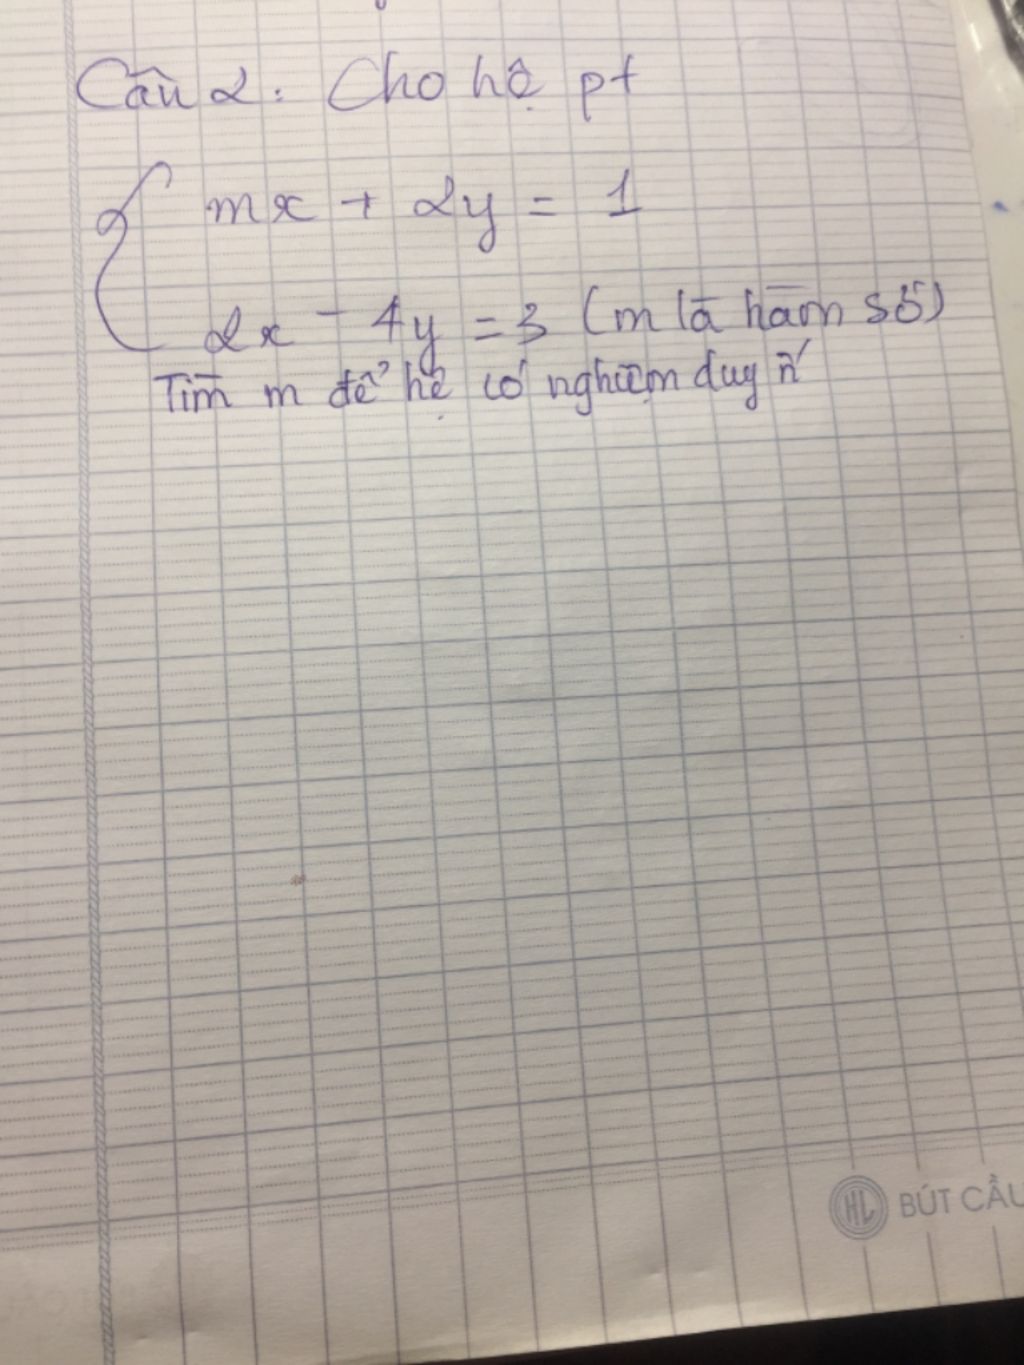 Câu 2: Cho hệ pt
mx + 2y = 1
2x - 4y = 3 (m là hàm số)
Tìm m để hệ có nghiệm duy n
HL BÚT CẦU